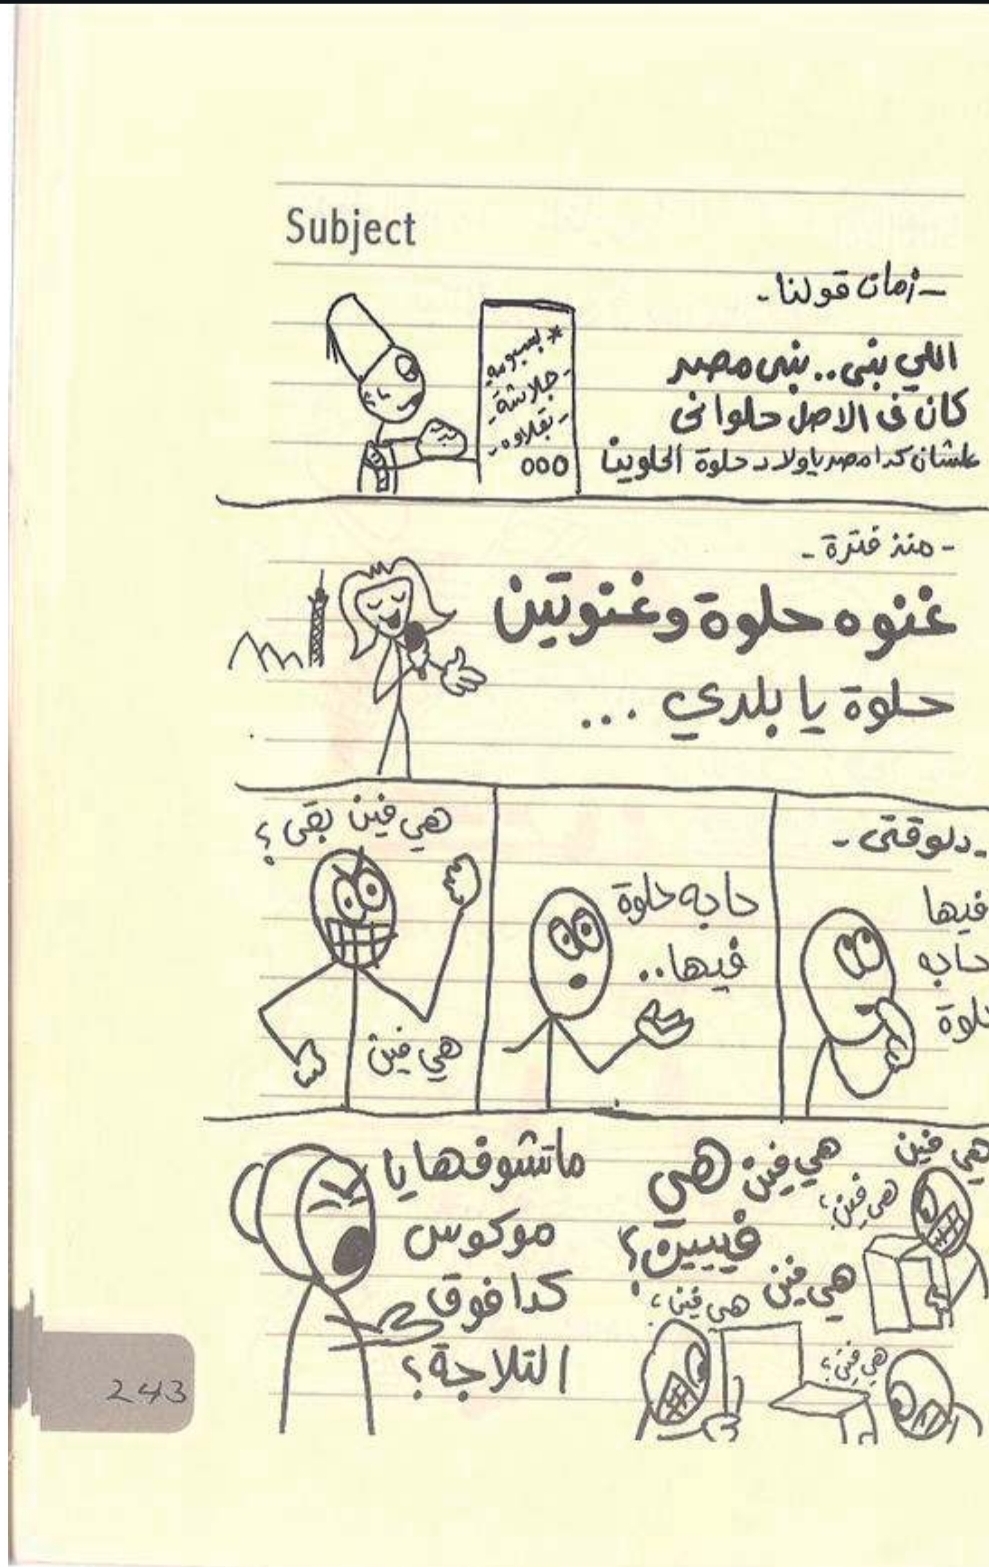 Subject
- زمان قولنا -
اللي بنى.. بنى مصر
كان فى الاصل حلوانى
علشان كدا مصر ياولاد حلوة الحلوين
* بسبوسه
- جلاشة
- بقلاوه
- منذ فترة -
غنوه حلوة وغنوتين
حلوة يا بلدي ...
- دلوقتى -
فيها
حاجه
حلوة
حاجه حلوة
فيها..
هي فين بقى؟
هي فين
هي فين
هي فين؟
هي فين
هي
فييين؟
هي فين
هي فين؟
هي فين؟
ماتشوفها يا
موكوس
كدا فوق
التلاجة؟
243